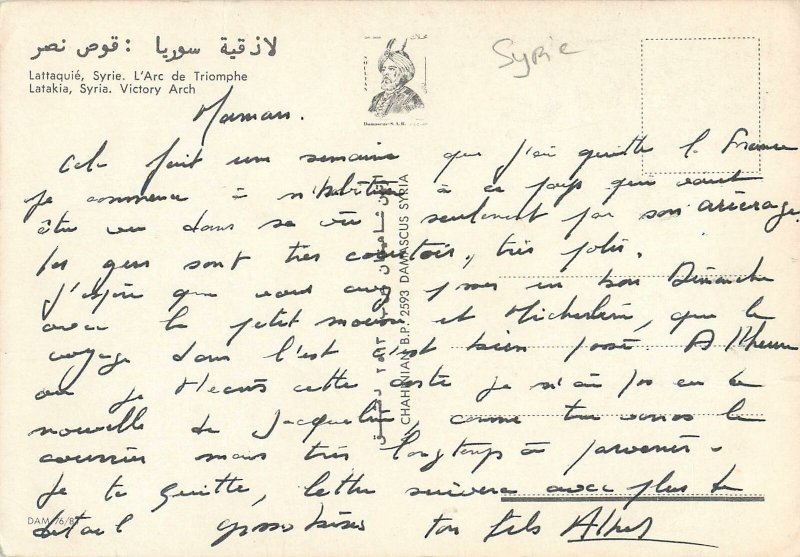 لاذقية سوريا : قوص نصر
Lattaquié, Syrie. L'Arc de Triomphe
Latakia, Syria. Victory Arch
Syrie
Damascus-S.A.R.
Maman.
Cela fait une semaine que j'ai quitté la France
je commence à m'habituer à ce pays qui vaut
être vu dans sa vie seulement par son arriérage.
les gens sont très courtois, très polis.
J'espère que vous avez passé un bon Dimanche
avec le petit et Micheline, que le
voyage dans l'est c'est bien passé. A l'heure
où je t'écris cette carte je n'ai pas eu de
nouvelle de Jacqueline, comme tu vois le
courrier mais très longtemps à parvenir.
Je te quitte, lettre suivra avec plus de
détail grosses bises ton fils
CHAHINIAN B.P. 2593 DAMASCUS SYRIA
DAM/76/81